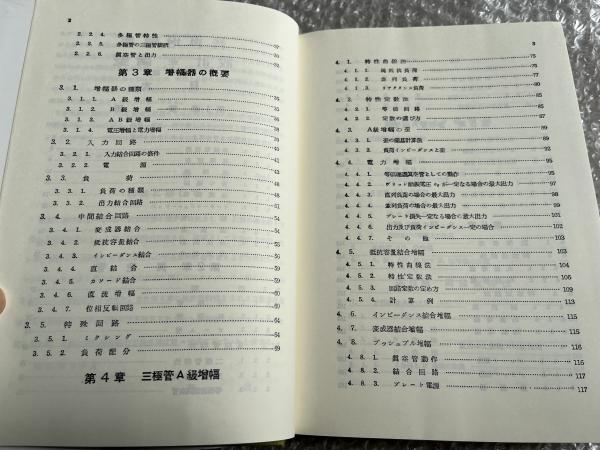 2
2. 2. 4. 多極管特性
2. 2. 5. 多極管の三極管接続 37
2. 2. 6. 真空管と出力
第3章 増幅器の概要
3. 1. 増幅器の種類
3. 1. 1. A 級 増 幅
3. 1. 2. B 級 増 幅
3. 1. 3. AB 級 増 幅
3. 1. 4. 電圧増幅と電力増幅
3. 2. 入 力 回 路
3. 2. 1. 入力結合回路の条件
3. 2. 2. 電 源
3. 3. 負 荷
3. 3. 1. 負 荷 の 種 類
3. 3. 2. 出力結合回路
3. 4. 中間結合回路
3. 4. 1. 変 成 器 結 合
3. 4. 2. 抵抗容量結合
3. 4. 3. インピーダンス結合
3. 4. 4. 直 結 合
3. 4. 5. カソード結合
3. 4. 6. 直 流 増 幅
3. 4. 7. 位相反転回路 64
3. 5. 特 殊 回 路 64
3. 5. 1. ミクシング 64
3. 5. 2. 負 荷 配 分 69
第4章 三極管A級増幅
3
4. 1. 特 性 曲 線 法 75
4. 1. 1. 純 抵 抗 負 荷 75
4. 1. 2. 並 列 負 荷 77
4. 1. 3. リアクタンス負荷 80
4. 2. 特 性 定 数 法 85
4. 2. 1. 等 価 回 路 85
4. 2. 2. 定数の選び方 87
4. 3. A級増幅の歪 89
4. 3. 1. 歪の概算計算法 89
4. 3. 2. 負荷インピーダンスと歪 92
4. 4. 電 力 増 幅 95
4. 4. 1. 等価電源真空管としての動作 95
4. 4. 2. グリッド励振電圧 eg が一定なる場合の最大出力
4. 4. 3. 直列負荷の場合の最大出力
4. 4. 4. 並列負荷の場合の最大出力
4. 4. 5. プレート損失一定なる場合の最大出力
4. 4. 6. 出力及び負荷インピーダンス一定の場合
4. 4. 7. そ の 他
4. 5. 抵抗容量結合増幅 103
4. 5. 1. 特 性 曲 線 法 104
4. 5. 2. 特 性 定 数 法 106
4. 5. 3. 回路定数の定め方 109
4. 5. 4. 計 算 例 113
4. 6. インピーダンス結合増幅
4. 7. 変成器結合増幅 115
4. 8. プッシュプル増幅 116
4. 8. 1. 真 空 管 動 作 116
4. 8. 2. 結 合 回 路 117
4. 8. 3. プレート電源 117